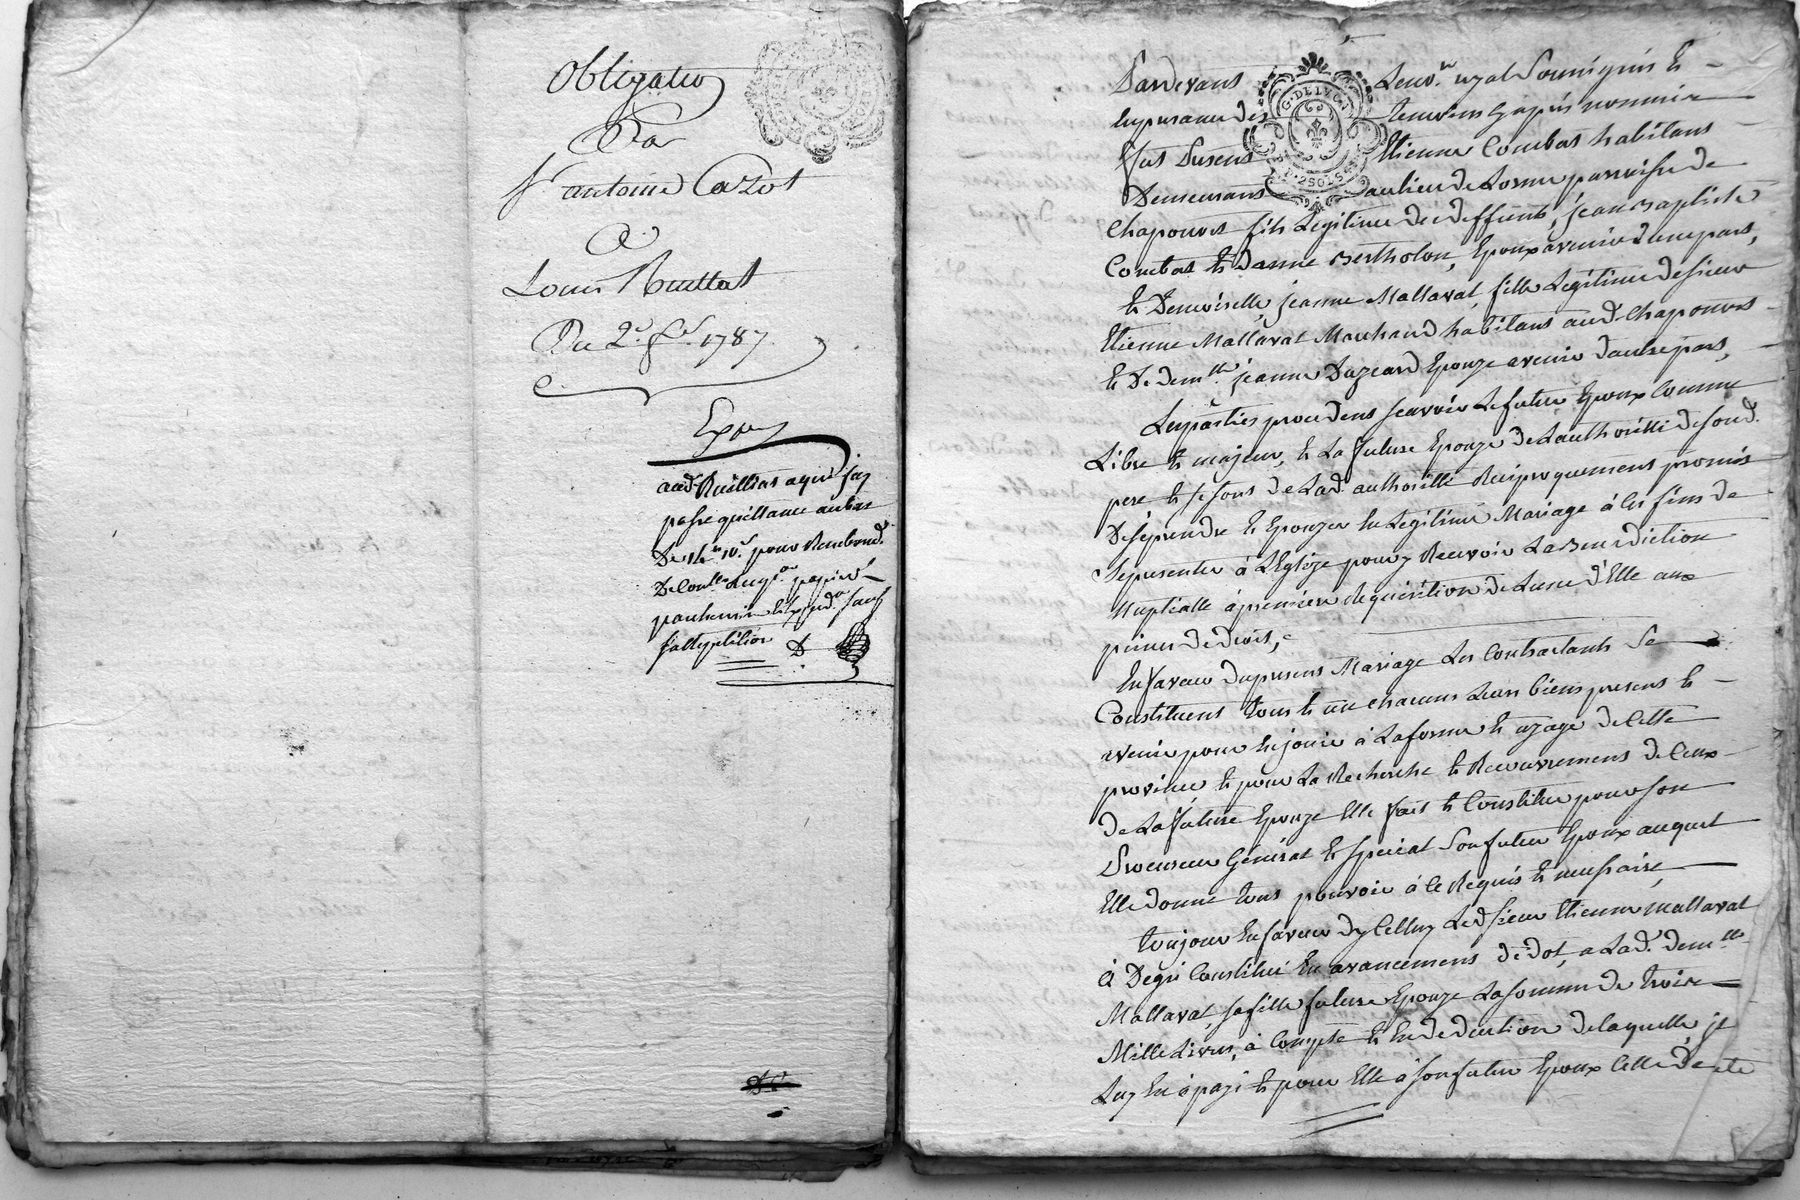 Obligation
Par
Sr antoine Cazot
A
Louis Ruettat
Du 2e 1787
Expe
aud. Ruillias aqui jay
passé quittance au bas
De 14# 10s pour Remboursd.
De Con.lle papier
parchemin Exped.on sauf
Pardevant Le no.re royal Soussigné Et
En presence des temoins cy apres nommés
fut present Etienne Combat habitant
Demeurant au lieu de Lorme parroisse de
Chaponost fils Legitime des deffunts, jean Baptiste
Combat Et Danne Bertholon, Epoux avenir d'une part,
Et Demoiselle, jeanne Mallaval, fille Légitime de sieur
Etienne Mallaval Marchand habitant aud. Chaponost
Et De dem.lle jeanne Dazeard Epouze avenir d'autre part,
Lesparties procedens scavoir Le futur Epoux Comme
Libre Et majeur, Et La future Epouze de Lauthorité de sond.
pere Et se sont de Lad. authorité Reciproquement promis
De se prendre Et Epouzer En Légitime Mariage à les fins de
se presenter à L'Eglize pour y Recevoir La Benediction
Nuptialle à premiere Requisition de Lune d'Elle aux
peines de droit,
En faveur du present Mariage Les Contractants Se
Constituent tous Et un chacuns Leurs biens presens Et
avenir pour En jouir à La forme Et uzage de Cette
province Et pour La Recherche Et Recouvrement de Ceux
de La future Epouze Elle fait Et Constitue pour son
Procureur Général Et special Son futur Epoux auquel
Elle donne tous pouvoir à Ce Requis Et necessaire,
toujour En faveur d'y Celluy Led. sieur Etienne Mallaval
à De gré Constitué En avancement de dot, a Lad. dem.lle
Mallaval, sa fille future Epouze La somme de trois
Mille Livres, à Compte Et En deduction de laquelle, il
Luy En à payé Et pour Elle à son futur Epoux Celle de